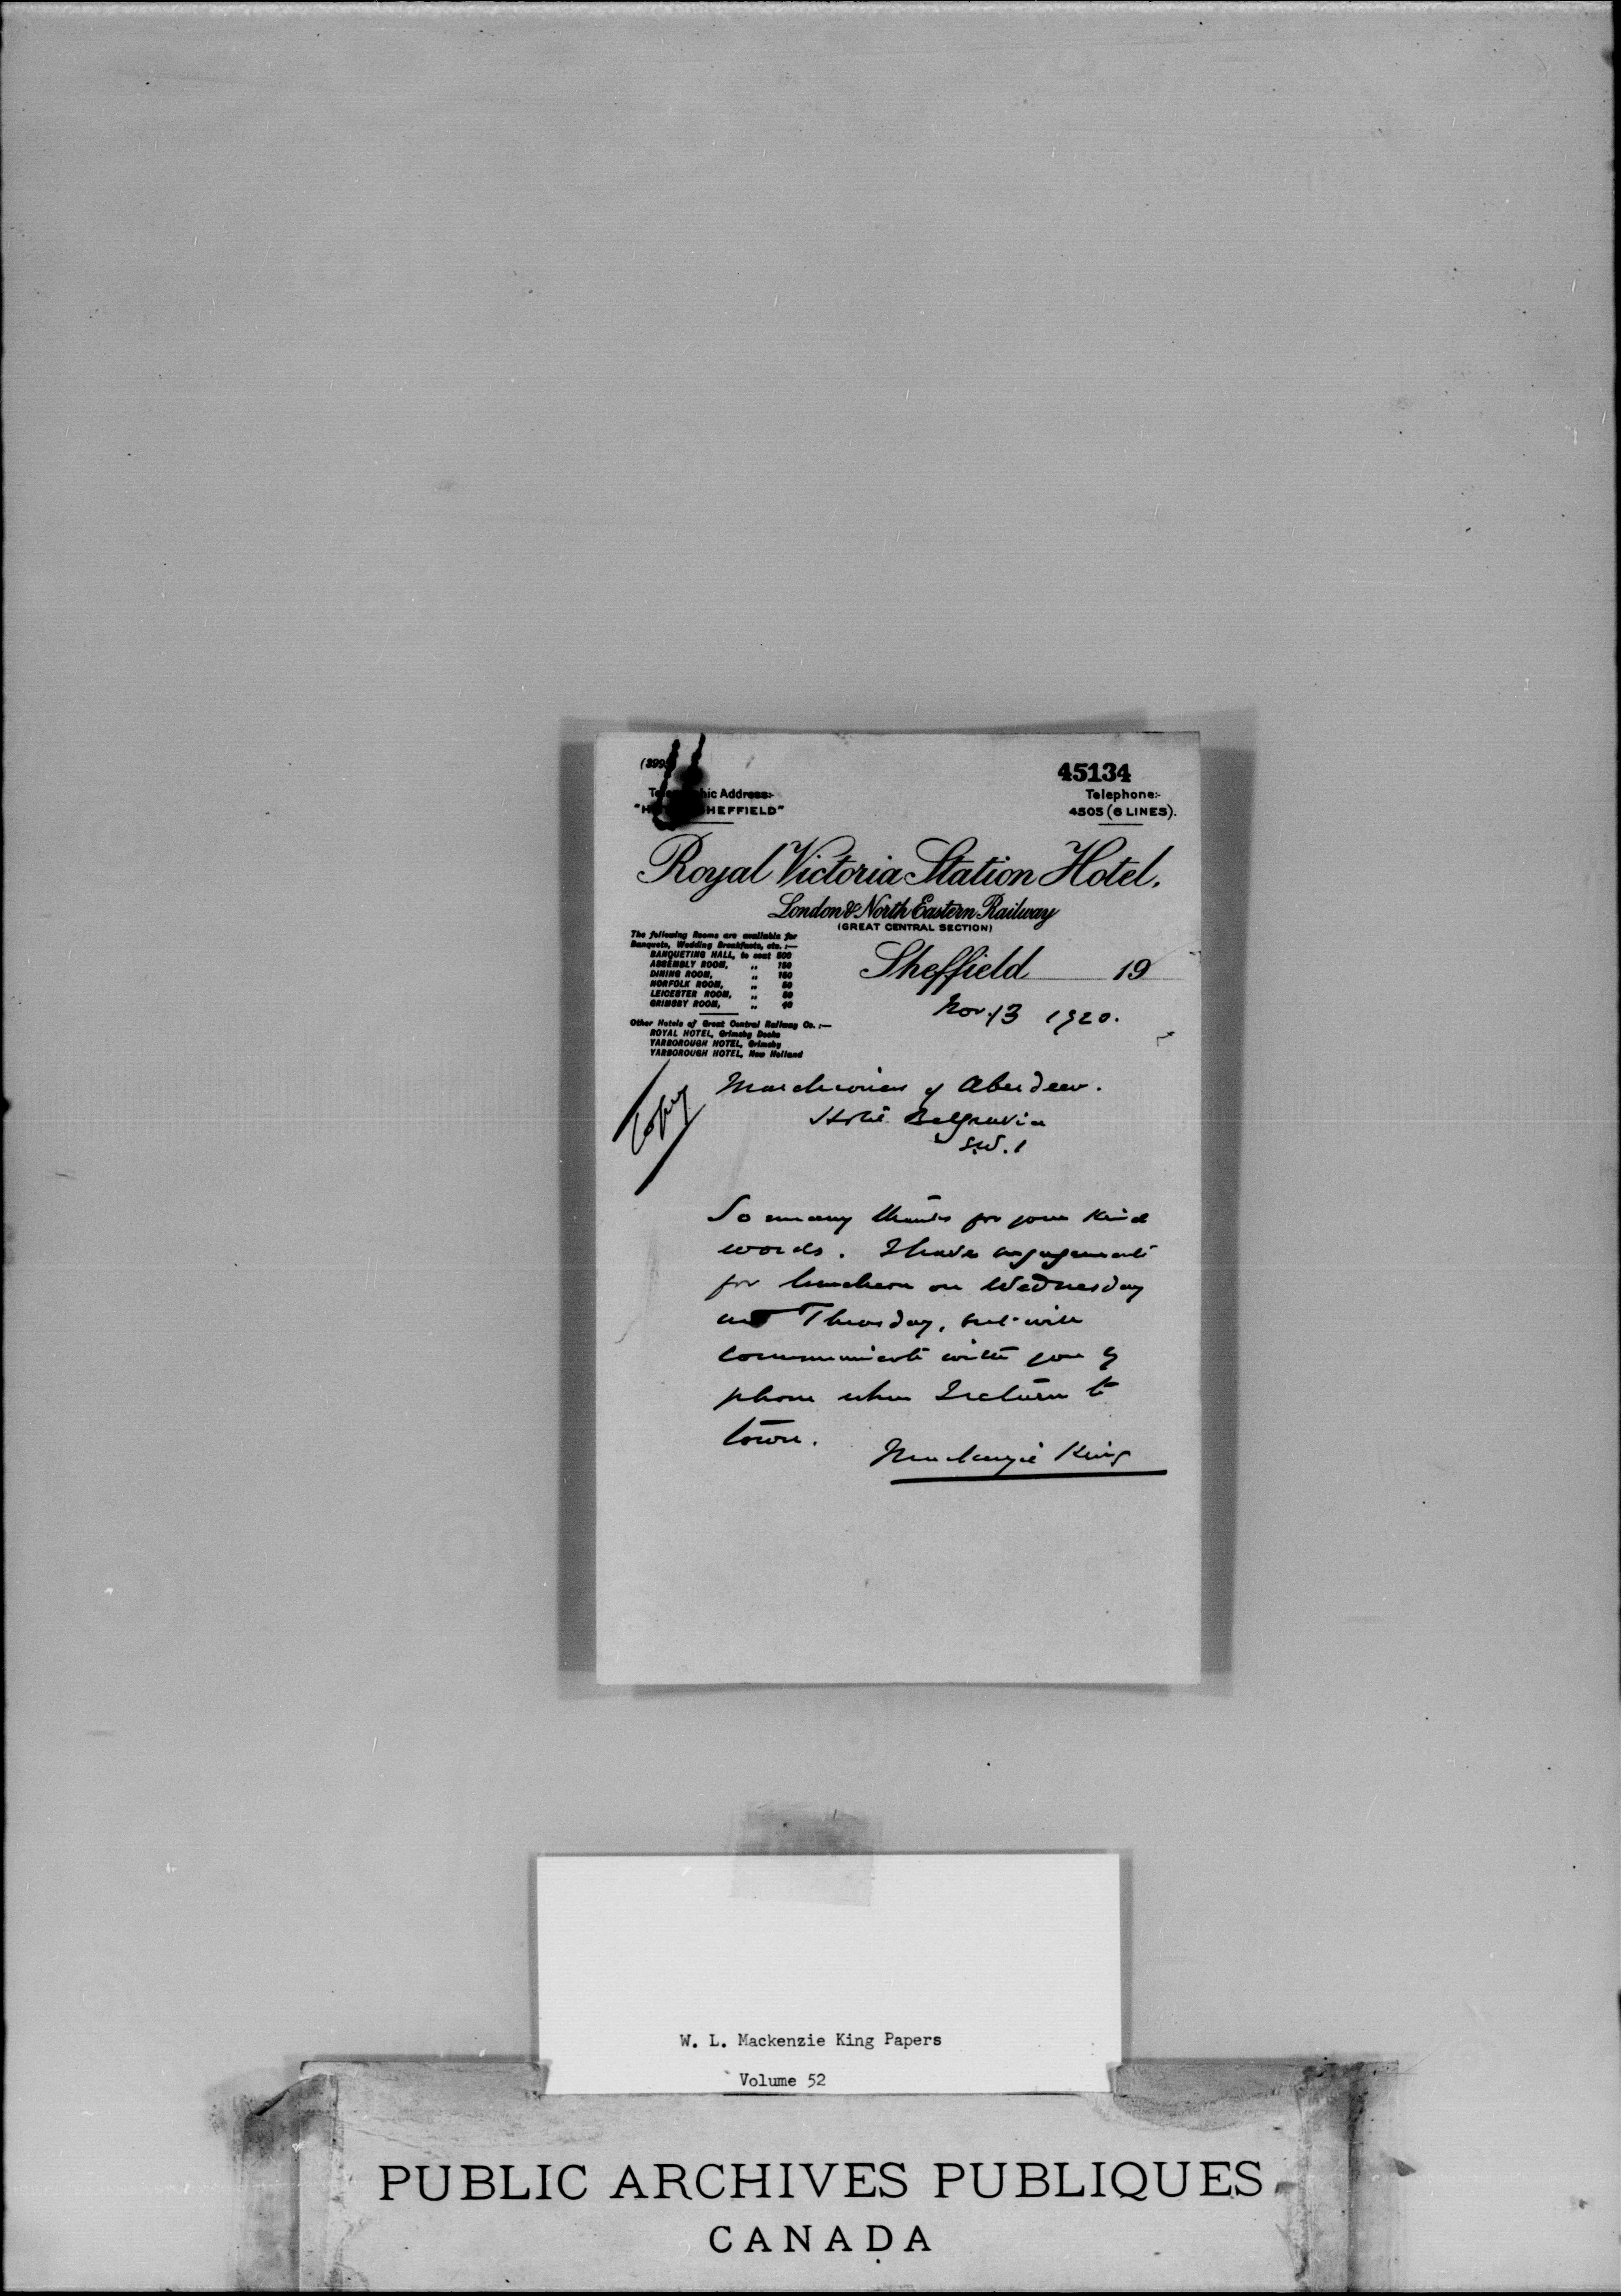 (899
45134
Telephone:-
4505 (6 LINES).
hic Address:-
HEFFIELD"
Royal Victoria Station Hotel.
London & North Eastern Railway
(GREAT CENTRAL SECTION)
The following Rooms are available for
Banquets, Wedding Breakfasts, etc. :—
BANQUETING HALL, to seat 500
ASSEMBLY ROOM, „ 150
DINING ROOM, „ 160
NORFOLK ROOM, „ 50
LEICESTER ROOM, „ 50
GRIMSBY ROOM, „ 40
Other Hotels of Great Central Railway Co. :—
ROYAL HOTEL, Grimsby Docks
YARBOROUGH HOTEL, Grimsby
YARBOROUGH HOTEL, New Holland
Sheffield 19
Nov. 13 1920.
Copy
Marchioness of Aberdeen.
Hotel Belgravia
S.W. 1
So many thanks for your kind
words. I have engagements
for luncheon on Wednesday
and Thursday, but will
communicate with you by
phone when I return to
town.
Mackenzie King
W. L. Mackenzie King Papers
Volume 52
PUBLIC ARCHIVES PUBLIQUES
CANADA